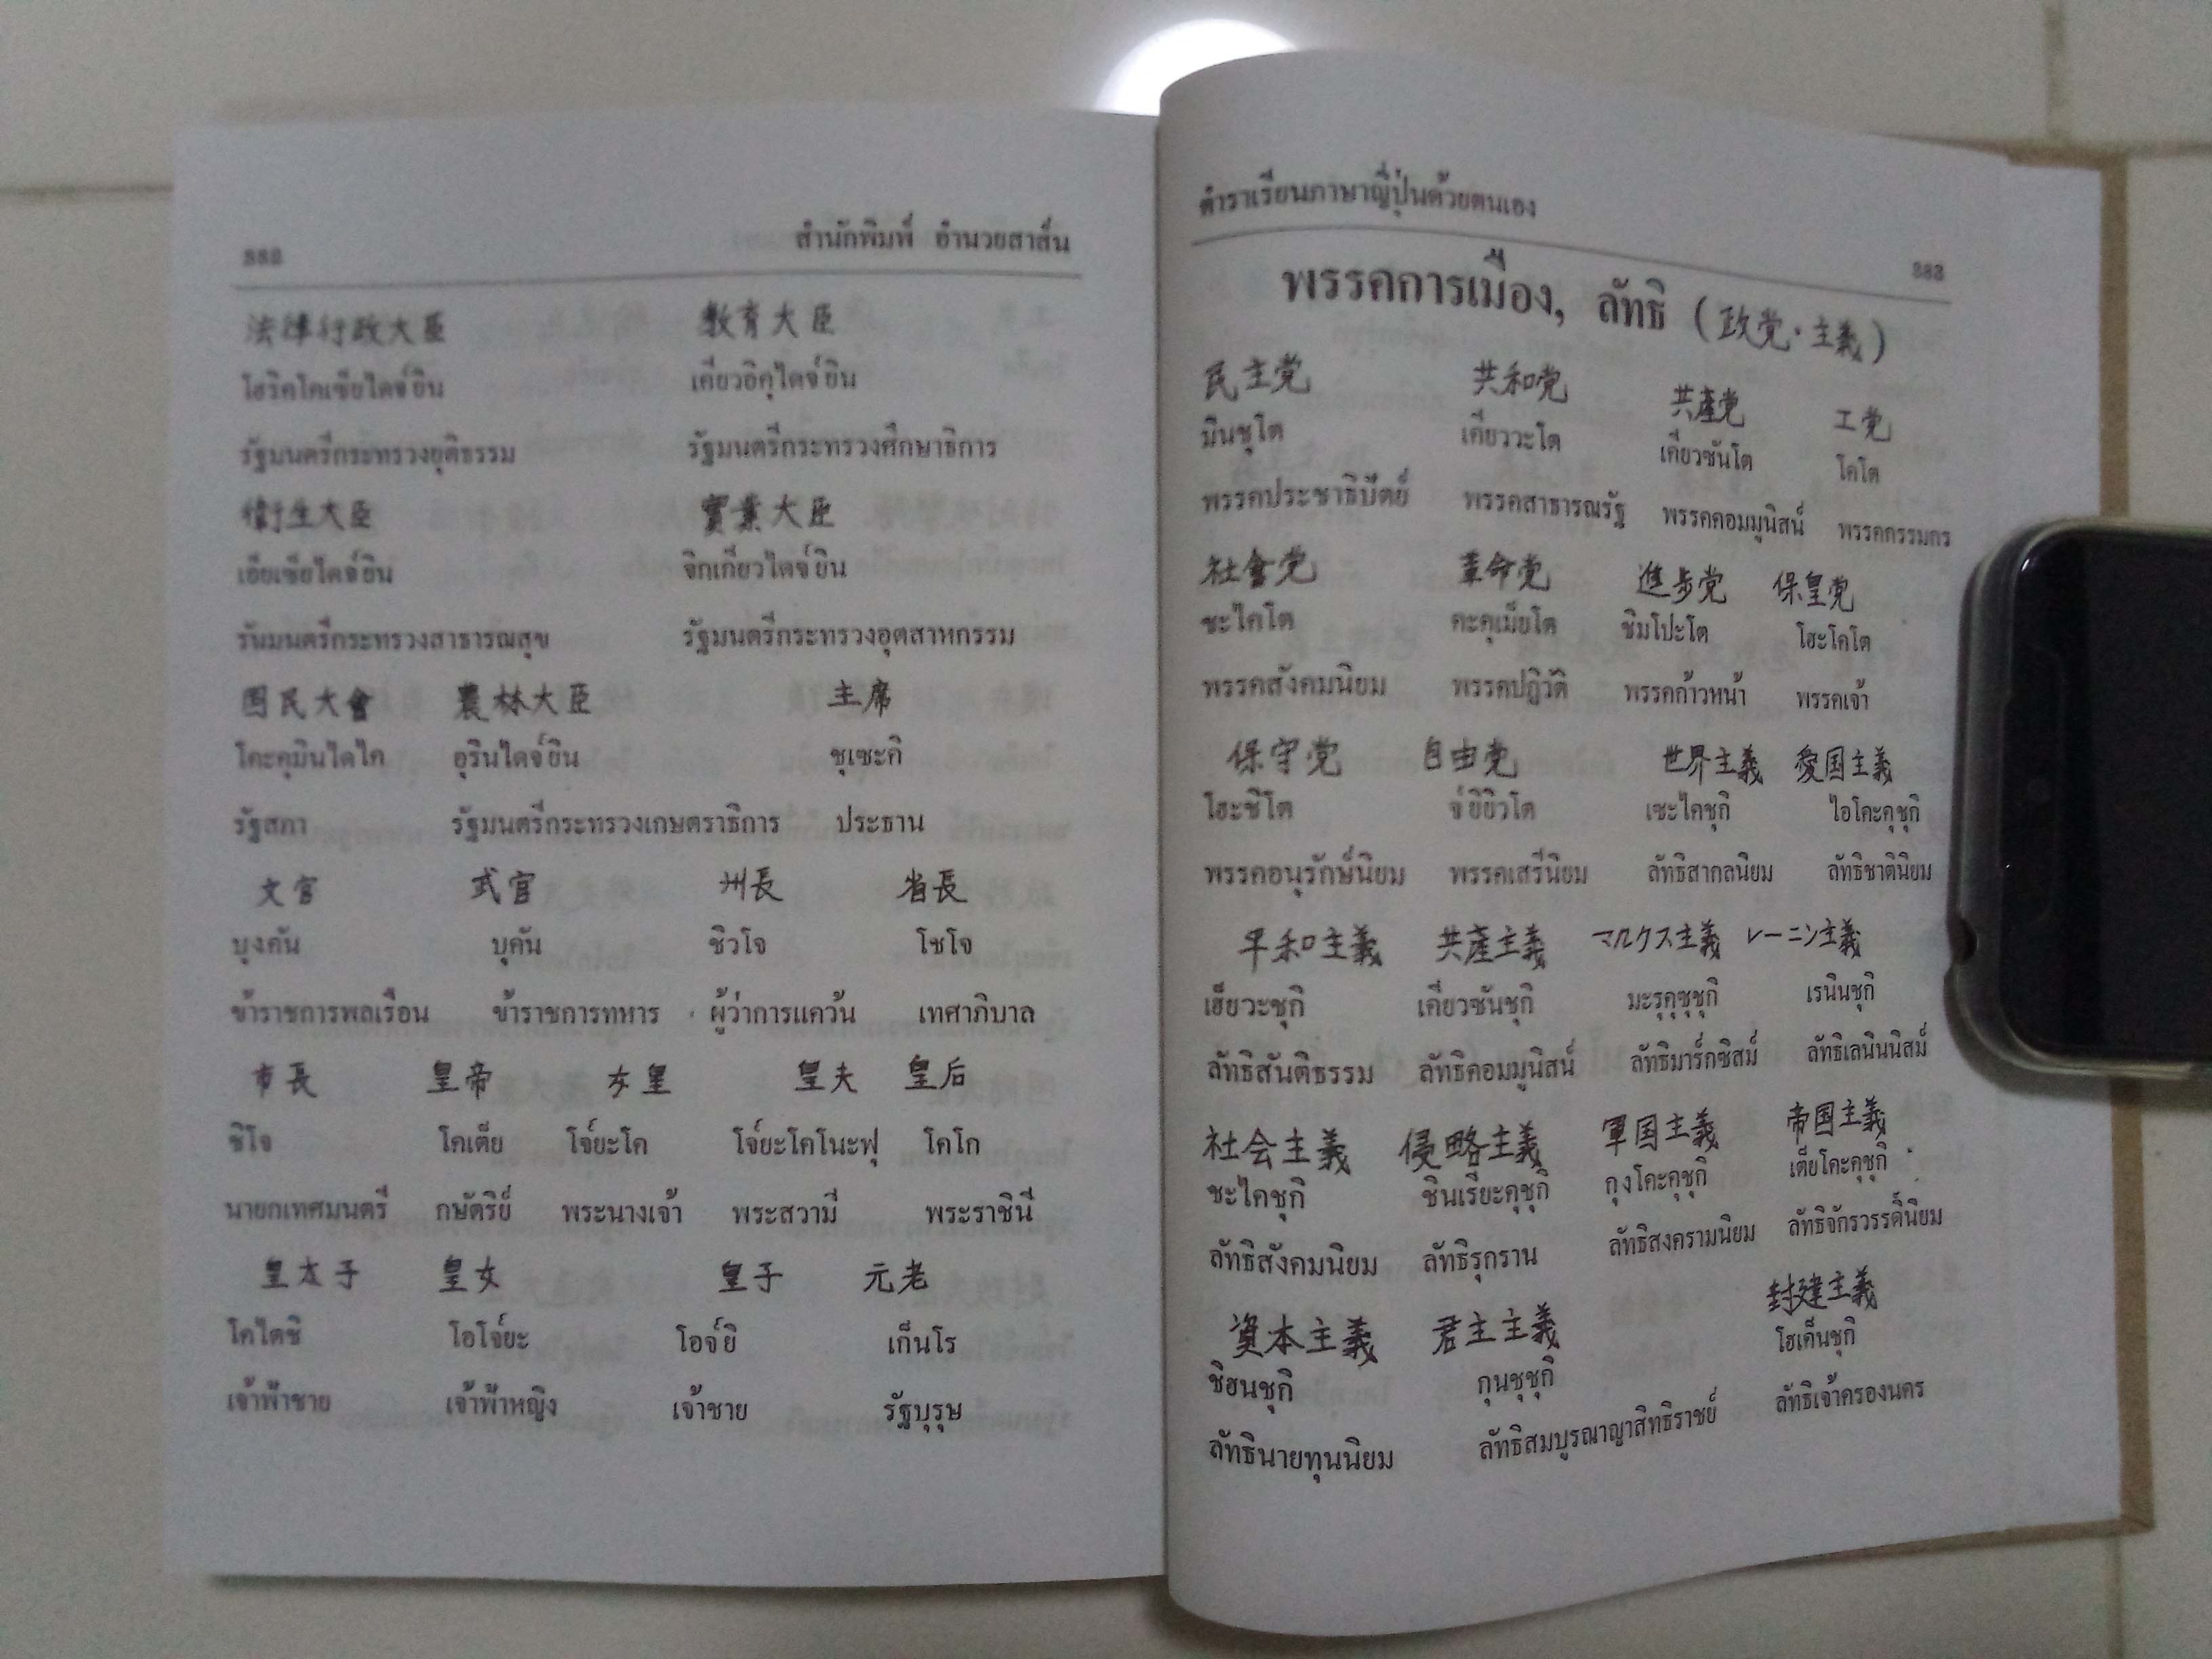 882 สำนักพิมพ์ อำนวยสาส์น
法律行政大臣 教育大臣
โฮริคโคเซียไดจ์ยิน เคียวอิคุไดจ์ยิน
รัฐมนตรีกระทรวงยุติธรรม รัฐมนตรีกระทรวงศึกษาธิการ
衛生大臣 實業大臣
เอียเซียไดจ์ยิน จิกเกียวไดจ์ยิน
รันมนตรีกระทรวงสาธารณสุข รัฐมนตรีกระทรวงอุตสาหกรรม
国民大會 農林大臣 主席
โคะคุมินไดไค อุรินไดจ์ยิน ชุเซะคิ
รัฐสภา รัฐมนตรีกระทรวงเกษตราธิการ ประธาน
文官 武官 州長 省長
บุงคัน บุคัน ชิวโจ โชโจ
ข้าราชการพลเรือน ข้าราชการทหาร ผู้ว่าการแคว้น เทศาภิบาล
市長 皇帝 女皇 皇夫 皇后
ชิโจ โคเต็ย โจ์ยะโค โจ์ยะโคโนะฟุ โคโก
นายกเทศมนตรี กษัตริย์ พระนางเจ้า พระสวามี พระราชินี
皇太子 皇女 皇子 元老
โคไตชิ โอโจ์ยะ โอจ์ยิ เก็นโร
เจ้าฟ้าชาย เจ้าฟ้าหญิง เจ้าชาย รัฐบุรุษ
ตำราเรียนภาษาญี่ปุ่นด้วยตนเอง 883
พรรคการเมือง, ลัทธิ (政党・主義)
民主党 共和党 共產党 工党
มินชุโต เคียววะโต เคียวซันโต โคโต
พรรคประชาธิปัตย์ พรรคสาธารณรัฐ พรรคคอมมูนิสน์ พรรคกรรมกร
社會党 革命党 進歩党 保皇党
ชะไคโต คะคุเม็ยโต ชิมโปะโต โฮะโคโต
พรรคสังคมนิยม พรรคปฏิวัติ พรรคก้าวหน้า พรรคเจ้า
保守党 自由党 世界主義 愛国主義
โฮะชิโต จ์ยิยิวโต เซะไคชุกิ ไอโคะคุชุกิ
พรรคอนุรักษ์นิยม พรรคเสรีนิยม ลัทธิสากลนิยม ลัทธิชาตินิยม
早和主義 共產主義 マルクス主義 レーニン主義
เฮ็ยวะชุกิ เคียวซันชุกิ มะรุคุซุชุกิ เรนินชุกิ
ลัทธิสันติธรรม ลัทธิคอมมูนิสน์ ลัทธิมาร์กซิสม์ ลัทธิเลนินนิสม์
社会主義 侵略主義 軍国主義 帝国主義
ชะไคชุกิ ชินเรียะคุชุกิ กุงโคะคุชุกิ เต็ยโคะคุชุกิ
ลัทธิสังคมนิยม ลัทธิรุกราน ลัทธิสงครามนิยม ลัทธิจักรวรรดิ์นิยม
資本主義 君主主義 封建主義
ชิฮนชุกิ กุนชุชุกิ โฮเค็นชุกิ
ลัทธินายทุนนิยม ลัทธิสมบูรณาญาสิทธิราชย์ ลัทธิเจ้าครองนคร